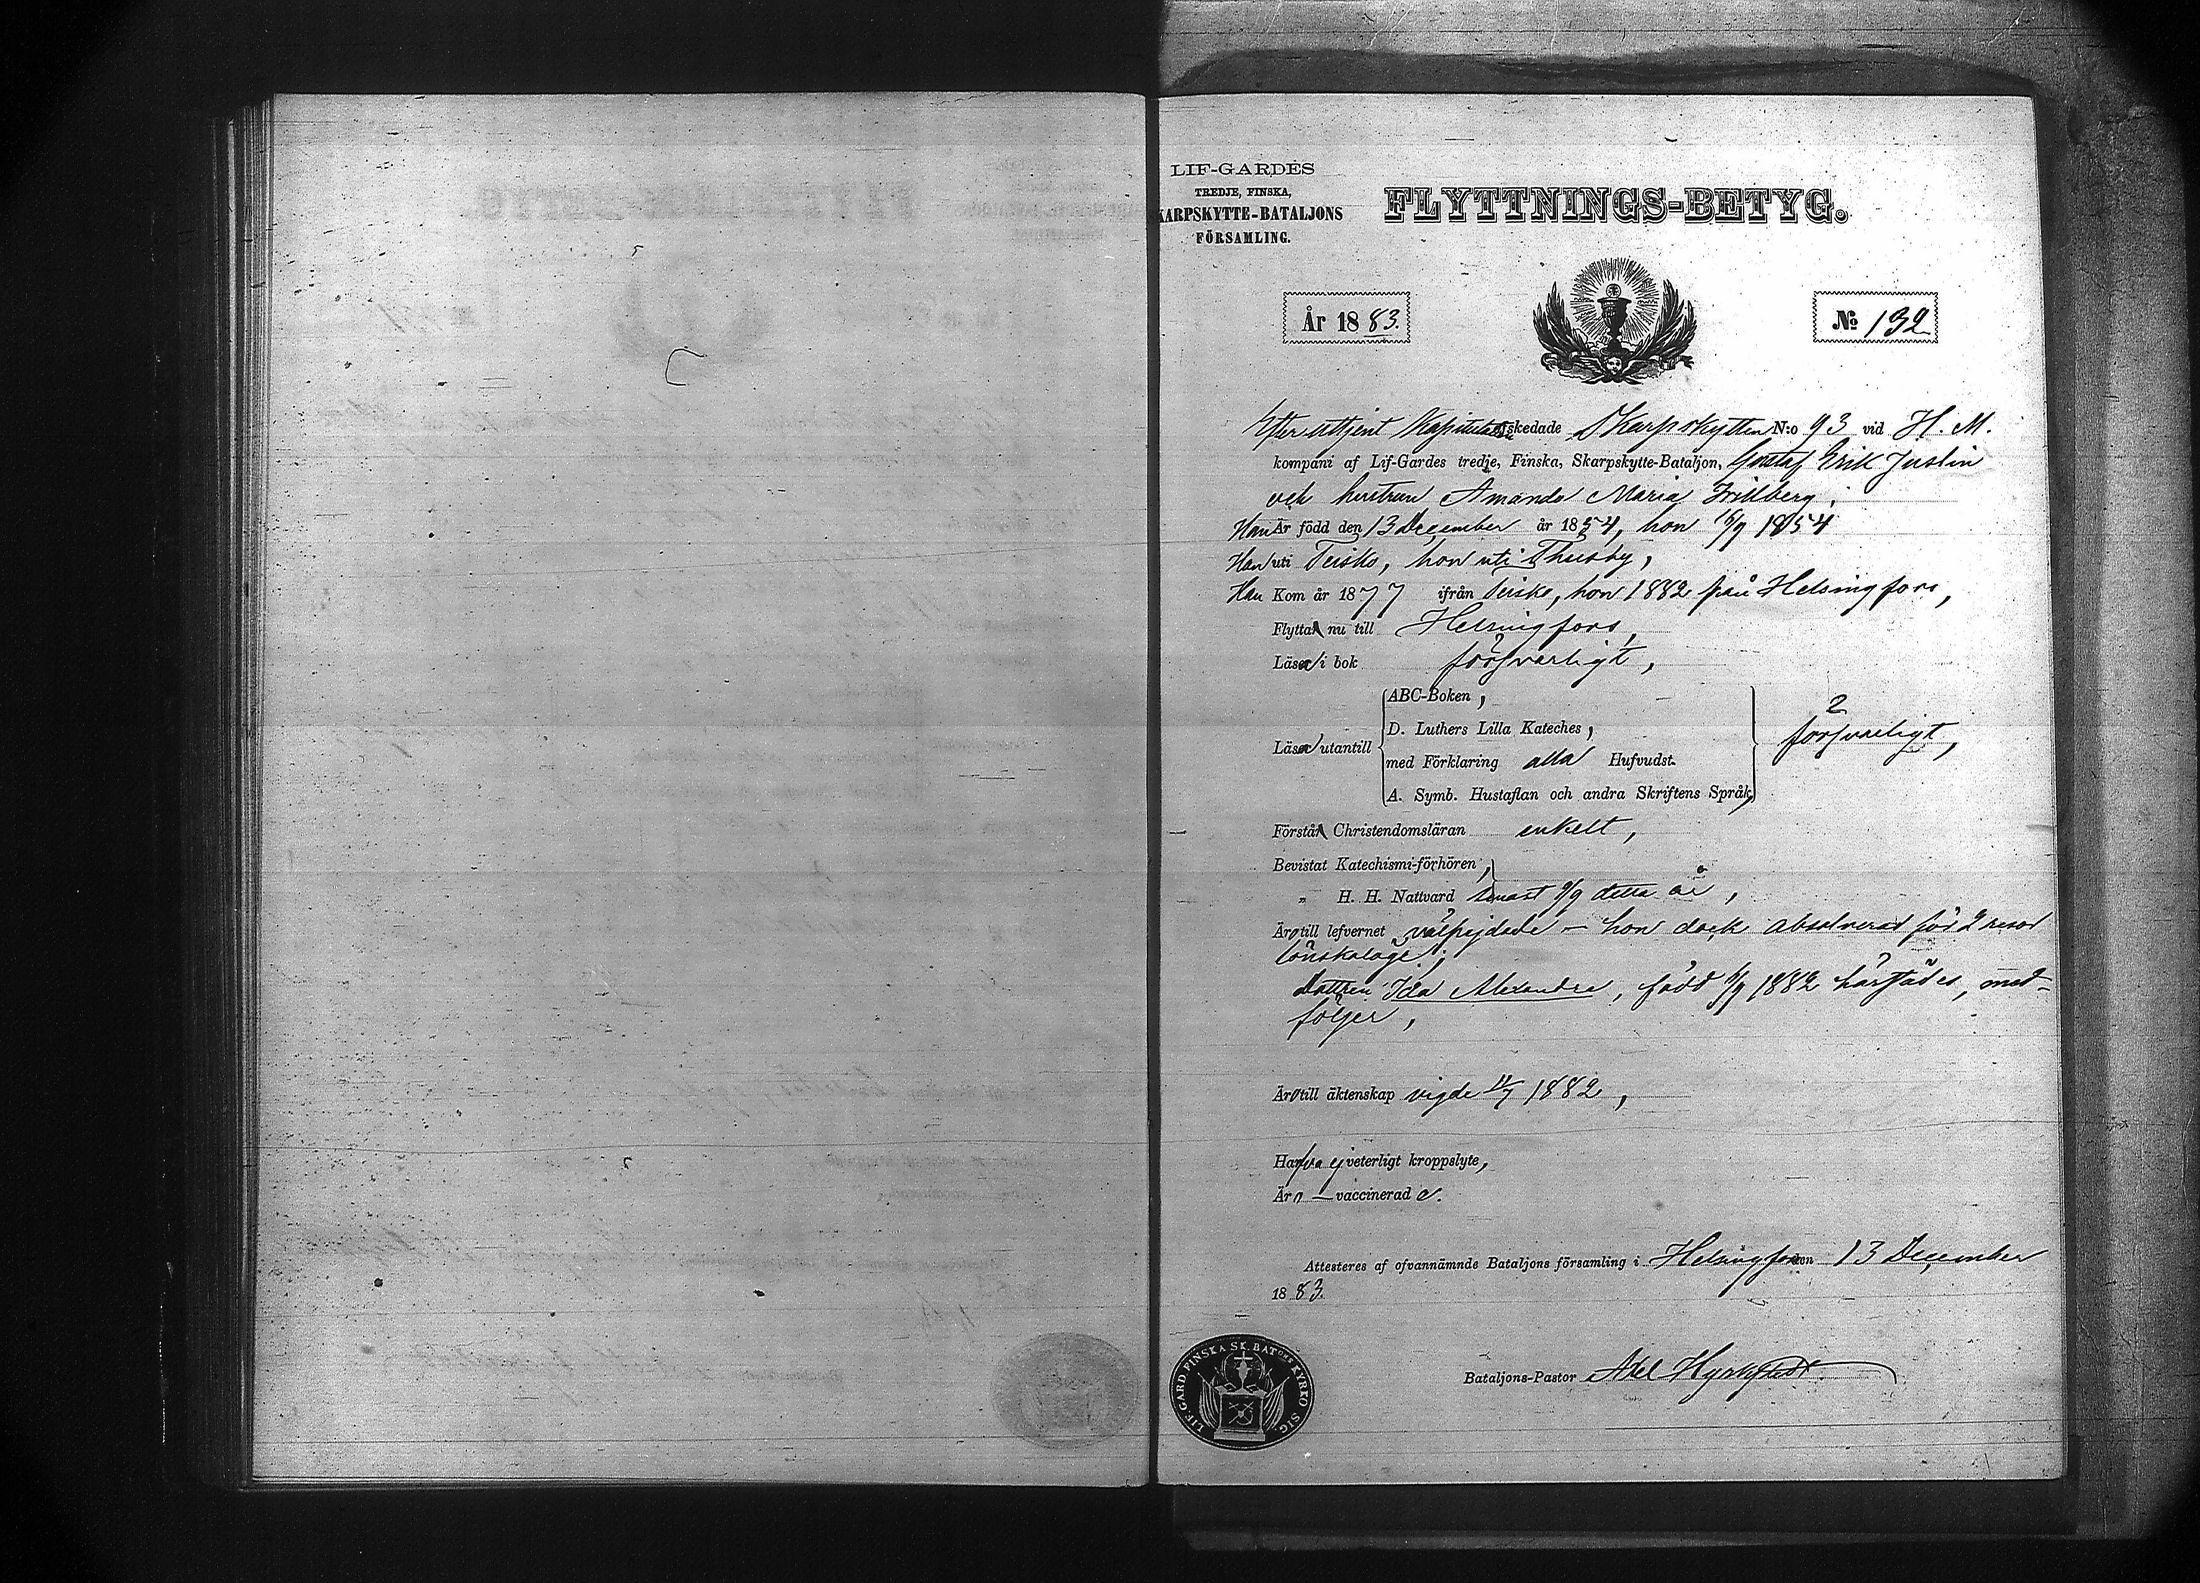 LIF-GARDES
TREDJE, FINSKA,
KARPSKYTTE-BATALJONS
FÖRSAMLING.
FLYTTNINGS-BETYG.
År 1883.
No 132
Efter uttjent Kapitulation afskedade Skarpskytten N:o 93 vid H. M.
kompani af Lif-Gardes tredje, Finska, Skarpskytte-Bataljon, Gustaf Erik Justin
och hustrun Amanda Maria Frillberg;
Han Är född den 13 December år 1854, hon /9 1854
Han uti Teisko, hon uti Thusby,
Han Kom år 1877 ifrån Teisko, hon 1882 från Helsingfors,
Flytta nu till Helsingfors,
Läsa i bok försvarligt,
ABC-Boken,
D. Luthers Lilla Kateches,
Läsa utantill
med Förklaring alla Hufvudst.
A. Symb. Hustaflan och andra Skriftens Språk,
försvarligt,
Förstå Christendomsläran enkelt,
Bevistat Katechismi-förhören,
„ H. H. Nattvard senast 9/9 detta år,
Äro till lefvernet välfrejdade — hon dock absolverad för 2 resor
lönskaläge;
dottren Ida Alexandra, född /9 1882 härstädes, med-
följer,
Äro till äktenskap vigde 11/7 1882,
Hafva ej veterligt kroppslyte,
Äro — vaccinerade.
Attesteres af ofvannämnde Bataljons församling i Helsingfors den 13 December
1883.
LIF-GARD. FINSKA SK. BATons KYRKO SIG.
Bataljons-Pastor Axel Hyrkstedt